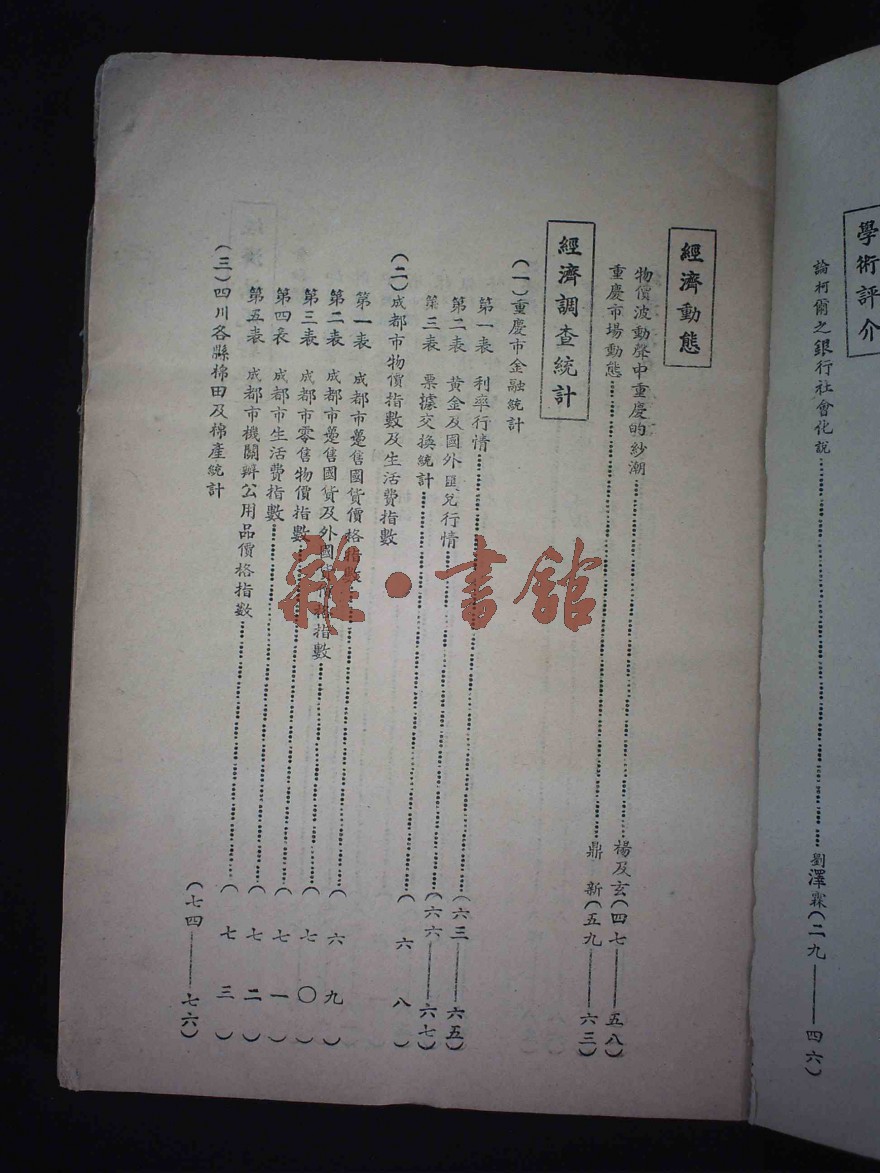 學術評介
論柯爾之銀行社會化說……劉澤霖(二九——四六)
經濟動態
物價波動聲中重慶的紗潮……楊及玄(四七——五八)
重慶市場動態……鼎新(五九——六三)
經濟調查統計
(一)重慶市金融統計
第一表 利率行情……
第二表 黃金及國外匯兌行情……(六三——六五)
第三表 票據交換統計……(六六——六七)
(二)成都市物價指數及生活費指數
第一表 成都市躉售國貨價格指數……(六八)
第二表 成都市躉售國貨及外國貨價格指數……(六九)
第三表 成都市零售物價指數……(七〇)
第四表 成都市生活費指數……(七一)
第五表 成都市機關辦公用品價格指數……(七二)
(七三)
(三)四川各縣棉田及棉產統計
(七四——七六)
雜·書館